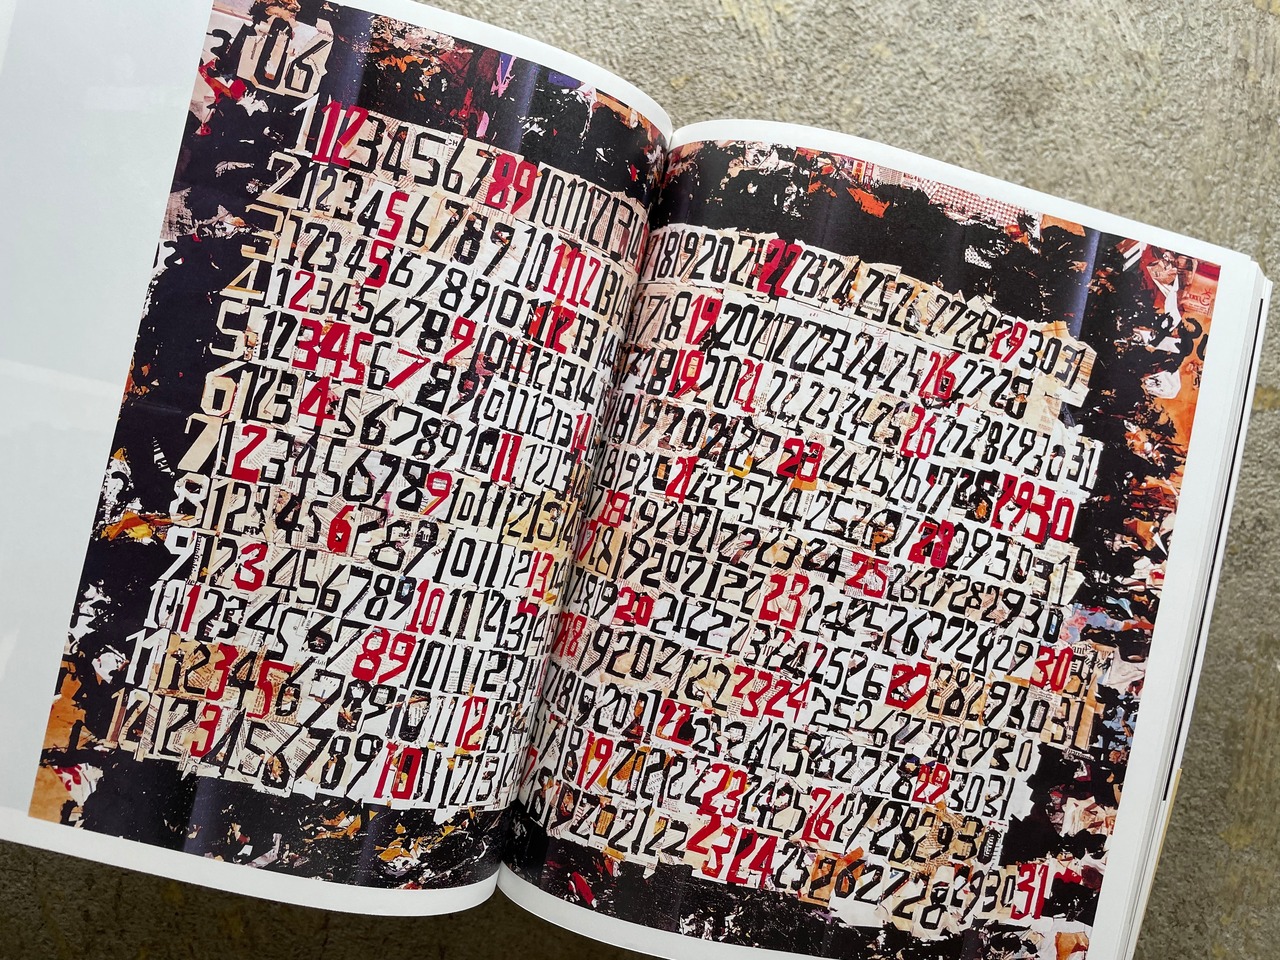 06
1 1 2 3 4 5 6 7 8 9 10 11 12 13 18 19 20 21 22 23 24 25 26 27 28 29 30 31
2 1 2 3 4 5 6 7 8 9 10 11 12 13 17 18 19 20 21 22 23 24 25 26 27 28
3 1 2 3 4 5 6 7 8 9 10 11 12 13 18 19 20 21 22 23 24 25 26 27 28 29 30 31
4 1 2 3 4 5 6 7 8 9 10 11 12 13 14 18 19 20 21 22 23 24 25 26 27 28 29 30
5 1 2 3 4 5 6 7 8 9 10 11 12 13 14 18 19 20 21 22 23 24 25 26 27 28 29 30 31
6 1 2 3 4 5 6 7 8 9 10 11 12 13 18 19 20 21 22 23 24 25 26 27 28 29 30
7 1 2 3 4 5 6 7 8 9 10 11 12 13 18 19 20 21 22 23 24 25 26 27 28 29 30 31
8 1 2 3 4 5 6 7 8 9 10 11 12 13 18 19 20 21 22 23 24 25 26 27 28 29 30 31
9 1 2 3 4 5 6 7 8 9 10 11 12 13 18 19 20 21 22 23 24 25 26 27 28 29 30
10 1 2 3 4 5 6 7 8 9 10 11 12 13 18 19 20 21 22 23 24 25 26 27 28 29 30 31
11 1 2 3 4 5 6 7 8 9 10 11 12 13 18 19 20 21 22 23 24 25 26 27 28 29 30
12 1 2 3 4 5 6 7 8 9 10 11 12 13 18 19 20 21 22 23 24 25 26 27 28 29 30 31